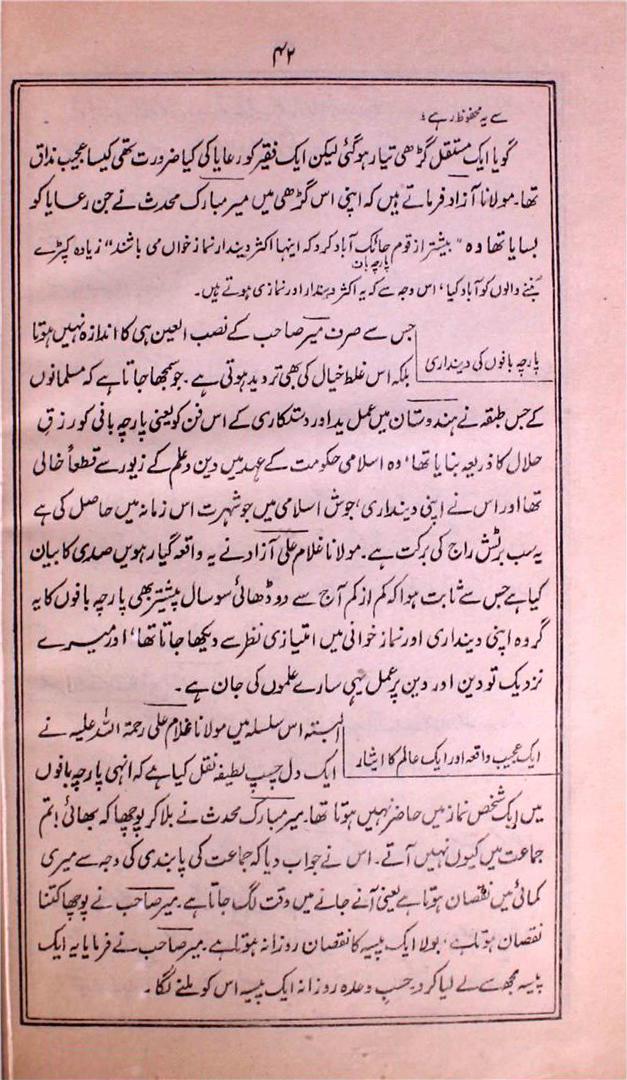 ۴۲
سے یہ محفوظ رہے ؛
گویا ایک مستقل گڑھی تیار ہوگئی لیکن ایک فقیر کو رعایا کی کیا ضرورت تھی کیسا عجیب مذاق
تھا۔ مولانا آزاد فرماتے ہیں کہ اپنی اس گڑھی میں میر مبارک محدث نے جن رعایا کو
بسایا تھا وہ "بیشتر از قوم حائک آباد کرد کہ اینہا اکثر دیندار نماز خواں می باشند" زیادہ کپڑے
پارچہ باف
بننے والوں کو آباد کیا، اس وجہ سے کہ یہ اکثر دیندار اور نمازی ہوتے ہیں۔
پارچہ بافوں کی دینداری
جس سے صرف میر صاحب کے نصب العین ہی کا اندازہ نہیں ہوتا
بلکہ اس غلط خیال کی بھی تردید ہوتی ہے۔ جو سمجھا جاتا ہے کہ مسلمانوں
کے جس طبقہ نے ہندوستان میں عمل ید اور دستکاری کے اس فن کو یعنی پارچہ بافی کو رزق
حلال کا ذریعہ بنایا تھا، وہ اسلامی حکومت کے عہد میں دین و علم کے زیور سے قطعاً خالی
تھا اور اس نے اپنی دینداری، جوش اسلامی میں جو شہرت اس زمانہ میں حاصل کی ہے
یہ سب برٹش راج کی برکت ہے۔ مولانا غلام علی آزاد نے یہ واقعہ گیارہویں صدی کا بیان
کیا ہے جس سے ثابت ہوا کہ کم از کم آج سے دو ڈھائی سو سال پیشتر بھی پارچہ بافوں کا یہ
گروہ اپنی دینداری اور نماز خوانی میں امتیازی نظر سے دیکھا جاتا تھا، اور میرے
نزدیک تو دین اور دین پر عمل یہی سارے علموں کی جان ہے۔
ایک عجیب واقعہ اور ایک عالم کا ایثار
البتہ اس سلسلہ میں مولانا غلام علی رحمۃ اللہ علیہ نے
ایک دل چسپ لطیفہ نقل کیا ہے کہ انہی پارچہ بافوں
میں ایک شخص نماز میں حاضر نہیں ہوتا تھا۔ میر مبارک محدث نے بلا کر پوچھا کہ بھائی! تم
جماعت میں کیوں نہیں آتے۔ اس نے جواب دیا کہ جماعت کی پابندی کی وجہ سے میری
کمائی میں نقصان ہوتا ہے یعنی آنے جانے میں وقت لگ جاتا ہے۔ میر صاحب نے پوچھا کتنا
نقصان ہوتا ہے، بولا ایک پیسہ کا نقصان روزانہ ہوتا ہے۔ میر صاحب نے فرمایا یہ ایک
پیسہ مجھ سے لے لیا کرو۔ حسبِ وعدہ روزانہ ایک پیسہ اس کو ملنے لگا۔